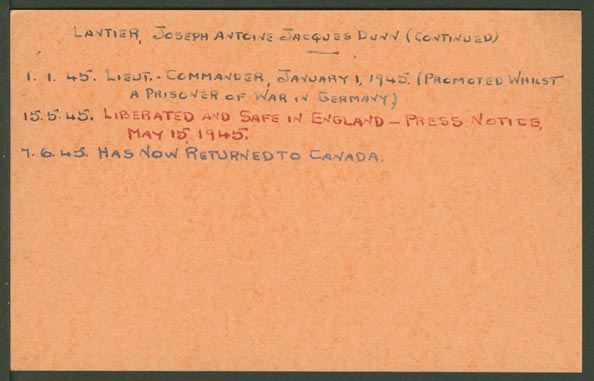 LANTIER, JOSEPH ANTOINE JACQUES DUNN (CONTINUED)
1. 1. 45. LIEUT.-COMMANDER, JANUARY 1, 1945. (PROMOTED WHILST
A PRISONER OF WAR IN GERMANY)
15. 5. 45. LIBERATED AND SAFE IN ENGLAND – PRESS NOTICE,
MAY 15, 1945.
7. 6. 45. HAS NOW RETURNED TO CANADA.